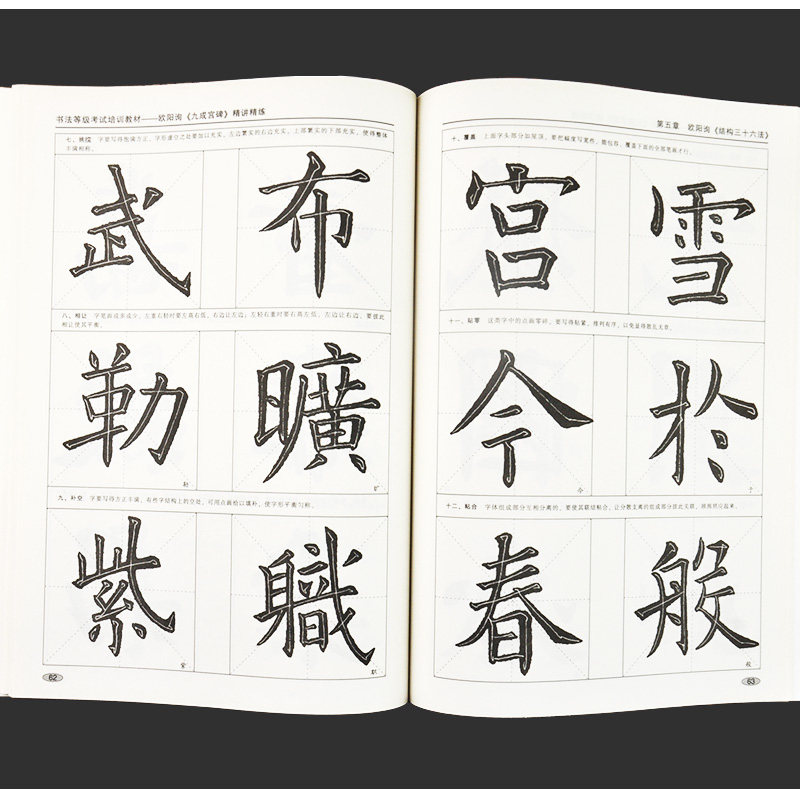 书法等级考试培训教材——欧阳询《九成宫碑》精讲精练
七、 字要写得饱满方正,字形虚空之处要加以充实。左边繁实的右边充实,上部繁实的下部充实,使得整体
丰满相称。
武 布
八、相让 字笔画或多或少,左重右轻时要左高右低,右边让左边;左轻右重时要右高左低,左边让右边,要彼此
相让使其平衡。
勒 曠
勒 旷
九、补空 字要写得方正丰满,有些字结构上的空处,可用点画给以填补,使字形平衡匀称。
紫 職
紫 职
62
第五章 欧阳询《结构三十六法》
十、覆盖 上面字头部分如屋顶,要把幅度写宽些,能包容、覆盖下面的全部笔画才行。
宫 雪
十一、贴零 这类字中的点画零碎,要写得贴紧,排列有序,以免显得散乱无章。
今 於
今 于
十二、粘合 字体组成部分互相分离的,要使其联结粘合,让分散支离的组成部分彼此关联,照应起来。
春 般
般
63